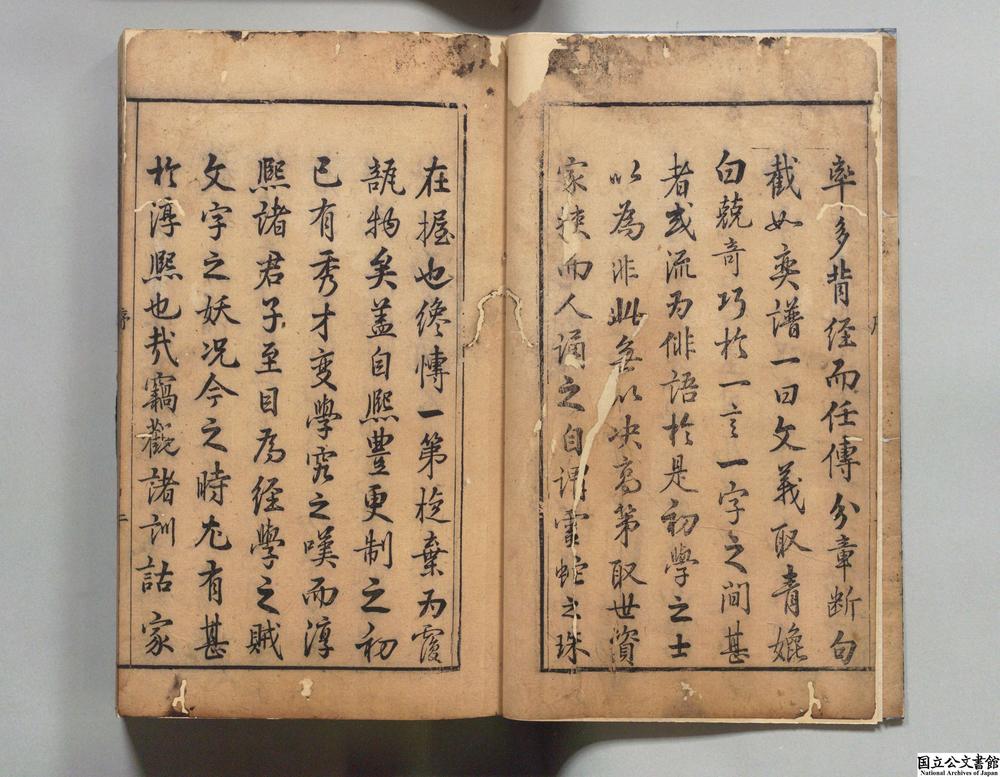 率多背経而任傳分章断句
截如奕譜一曰文義取青媲
白競奇巧於一言一字之間甚
者或流为俳語於是初學之士
以為非此無以决髙第取世資
家挟而人誦之自謂靈蛇之珠
在握也纔博一第旋棄为覆
瓿物矣盖自熙豐更制之初
已有秀才变學究之嘆而淳
熙諸君子至目為経學之賊
文字之妖况今之時尤有甚
於淳熙也哉竊觀諸訓詁家
序
国立公文書館
National Archives of Japan